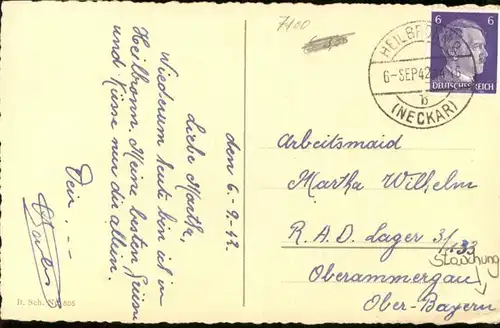 7100
den 6-9.42.
Liebe Martha,
Wiederum heute bin ich in
Heilbronn. Meine besten Grüsse
und Küsse nur dir allein.
Dein . --
HEILBRONN
6-SEP42
b
(NECKAR)
6 6
DEUTSCHES REICH
Arbeitsmaid
Martha Wilhelm
R.A.D. Lager 3/133
Oberammergau
Ober-Bayern
B. Sch. Nr. 805